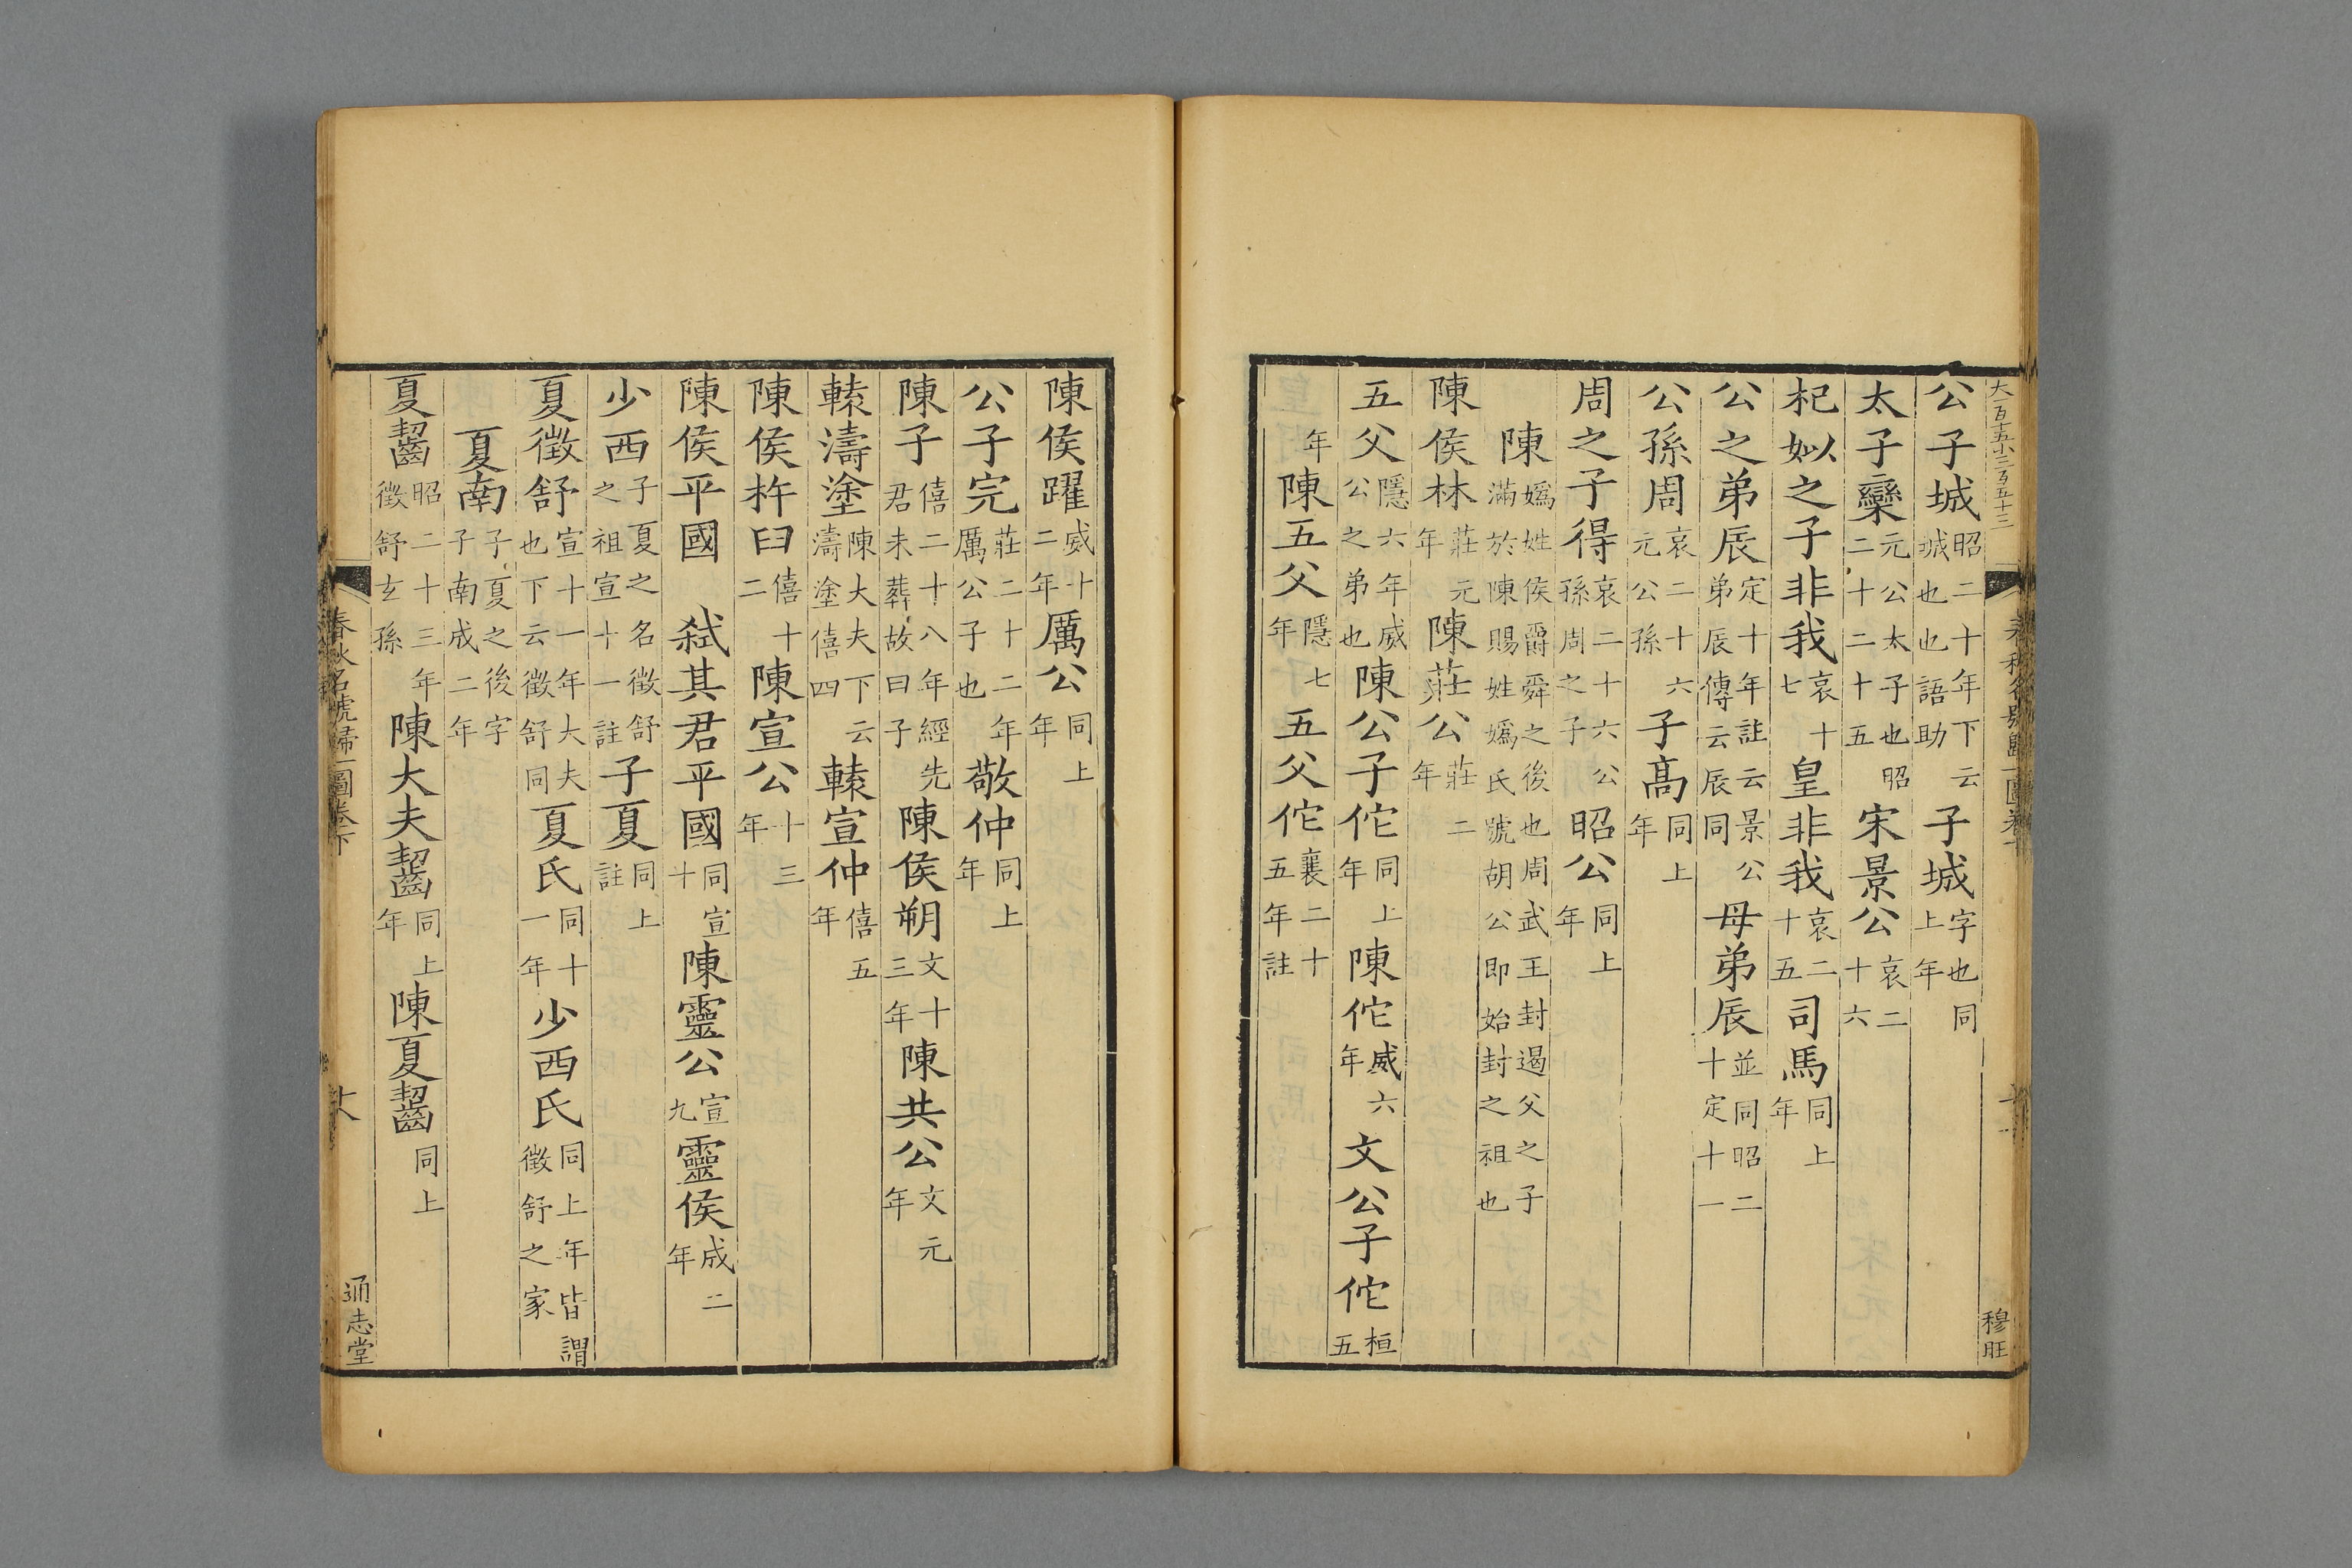 大一百十五小三百五十三
穆旺
公子城昭二十年下云城也也語助子城字也同上年
太子欒元公太子也昭二十二十五宋景公哀二十六
杞姒之子非我哀十七皇非我哀二十五司馬同上年
公之弟辰定十年註云景公弟辰傳云辰同母弟辰並同昭二十定十一
公孫周哀二十六元公孫子高同上年
周之子得哀二十六公孫周之子昭公同上年
陳媯姓侯爵舜之後也周武王封遏父之子滿於陳賜姓媯氏號胡公即始封之祖也
陳侯林莊元年陳莊公莊二年
五父隱六年威公之弟也陳公子佗同上年陳佗威六年文公子佗桓五
年陳五父隱七年五父佗襄二十五年註
陳侯躍威十二年厲公同上年
公子完莊二十二年厲公子也敬仲同上年
陳子僖二十八年經先君未葬故曰子陳侯朔文十三年陳共公文元年
轅濤塗陳大夫下云濤塗僖四轅宣仲僖五年
陳侯杵臼僖十二陳宣公十三年
陳侯平國 弒其君平國同宣十陳靈公宣九靈侯成二年
少西子夏之名徵舒之祖宣十一註子夏同上註
夏徵舒宣十一年大夫也下云徵舒同夏氏同十一年少西氏同上年皆謂徵舒之家
夏南子夏之後字子南成二年
夏齧昭二十三年徵舒玄孫陳大夫齧同上年陳夏齧同上
春秋名號歸一圖卷下
十八
通志堂